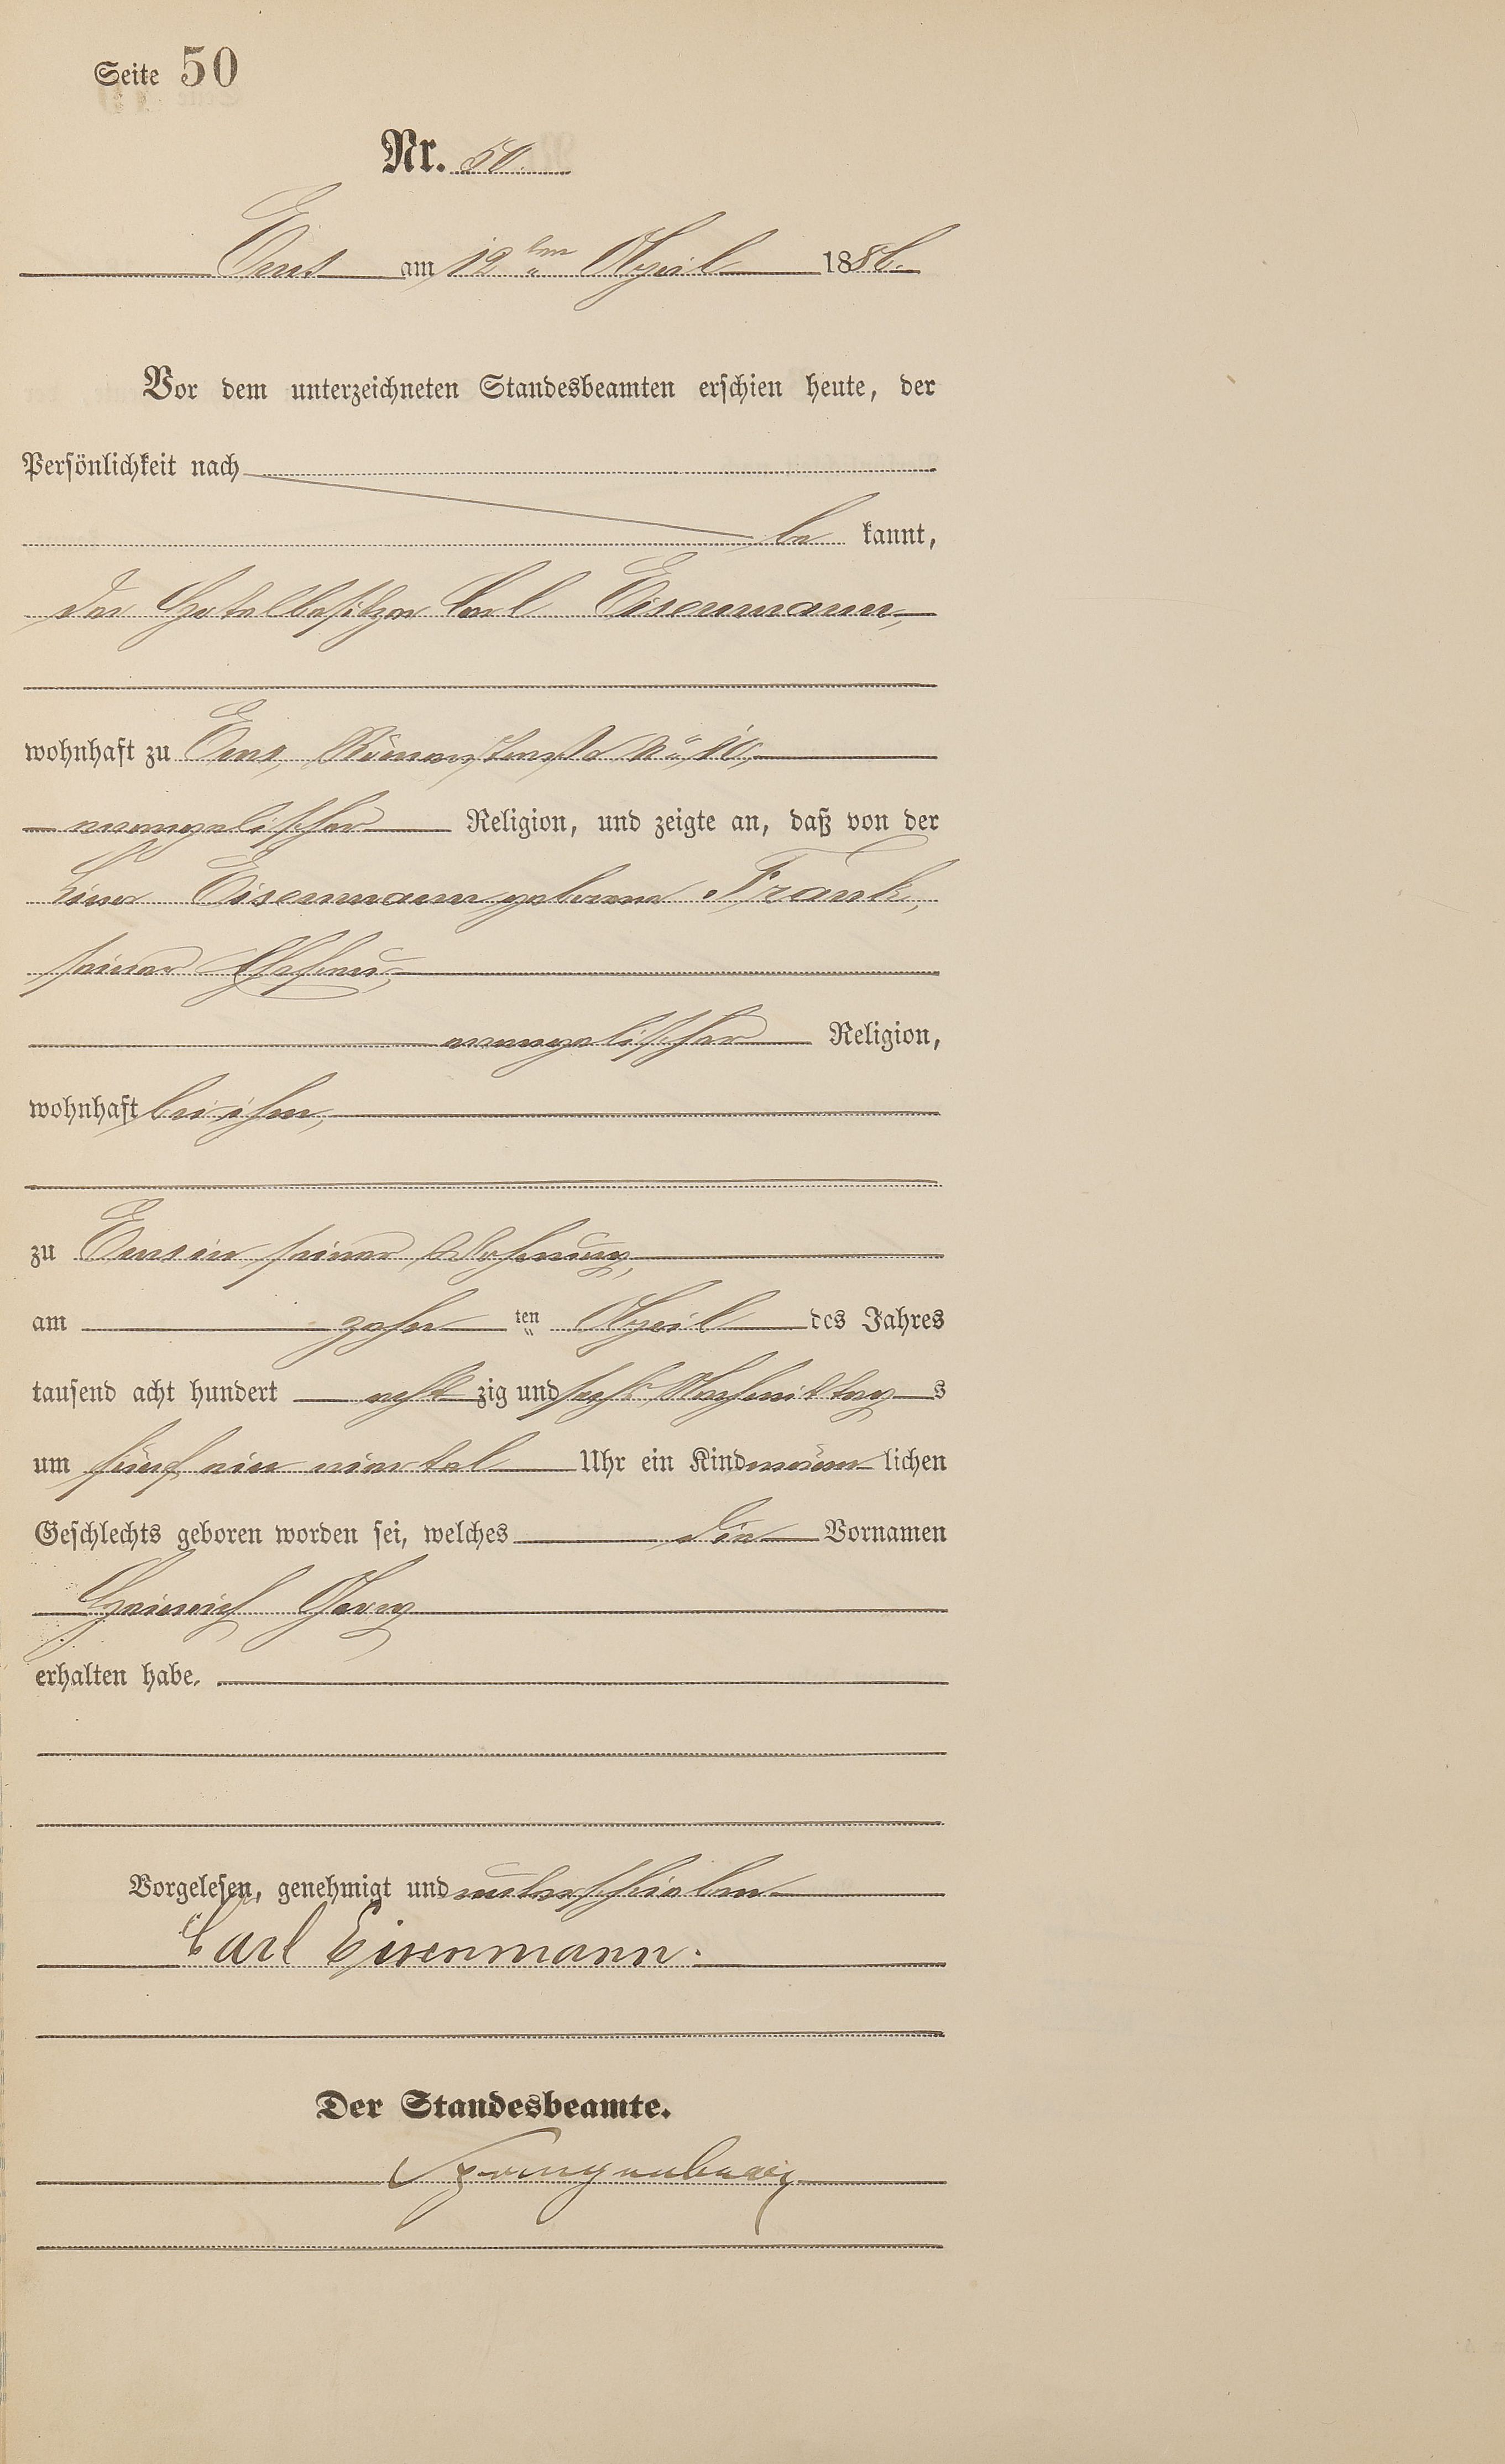 Seite 50
Nr. 50.
Ems am 12ten April 1886.
Vor dem unterzeichneten Standesbeamten erschien heute, der
Persönlichkeit nach
be kannt,
der Hotelbesitzer Carl Eisenmann,
wohnhaft zu Ems, Römerstraße No 10,
evangelischer Religion, und zeigte an, daß von der
Lina Eisenmann geborene Frank,
seiner Ehefrau,
evangelischer Religion,
wohnhaft bei ihm,
zu Ems in seiner Wohnung,
am zehn ten April des Jahres
tausend acht hundert acht zig und sechs Nachmittag s
um fünf ein viertel Uhr ein Kind männ lichen
Geschlechts geboren worden sei, welches die Vornamen
Heinrich Georg
erhalten habe.
Vorgelesen, genehmigt und unterschrieben
Carl Eisenmann.
Der Standesbeamte.